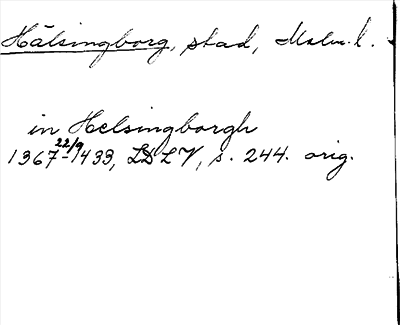 Hälsingborg, stad, Malm. l.
in Helsingborgh
1367 22/9 - 1433, LDLV, s. 244. orig.